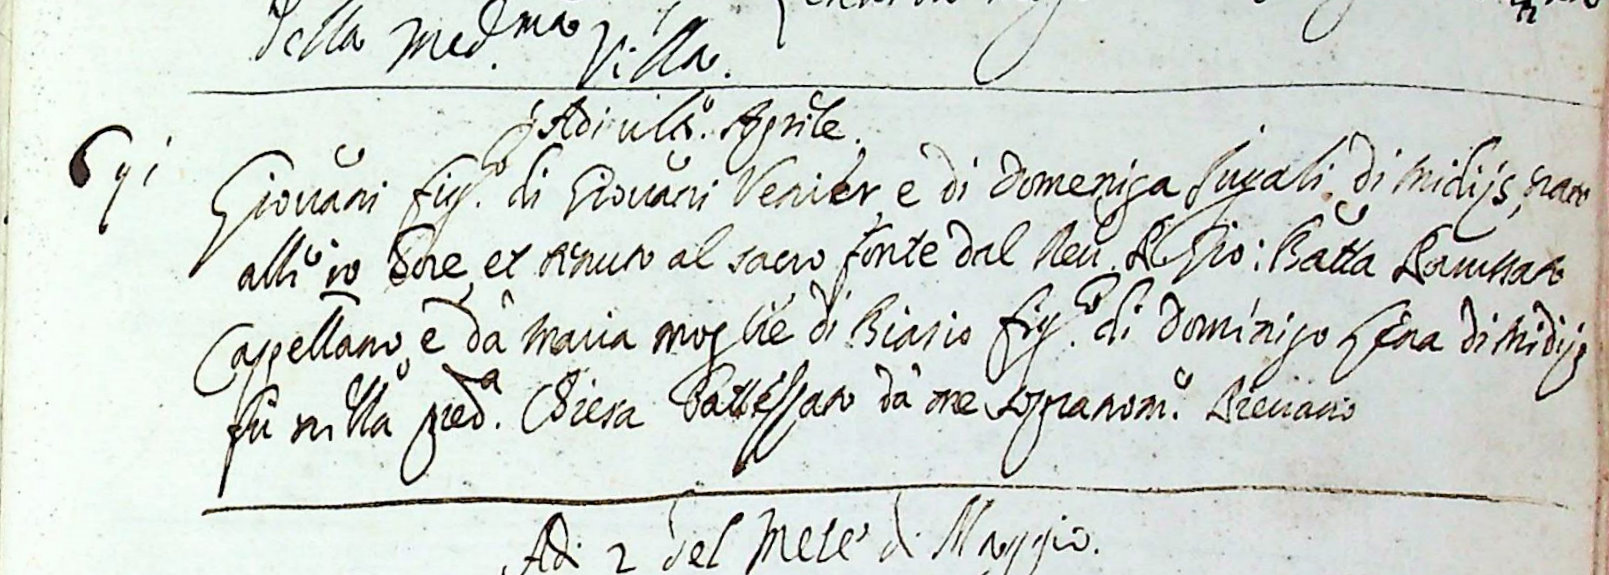 della med.ma Villa.
Adi ult.o Aprile.
Giovani fig.o di Giovani Venier, e di Domeniga Jugali di Midijs, nato
alli 10 et tenuto al sacro fonte dal Reu. P. Gio: Batta Ramussato
Capellano, e dà Maria moglie di Biasio fig.o di Dominigo di Midijs
fù nella pred.a Chiesa Battéssato dà me sopranom.o Pievano
Adi 2 del Mese di Maggio.